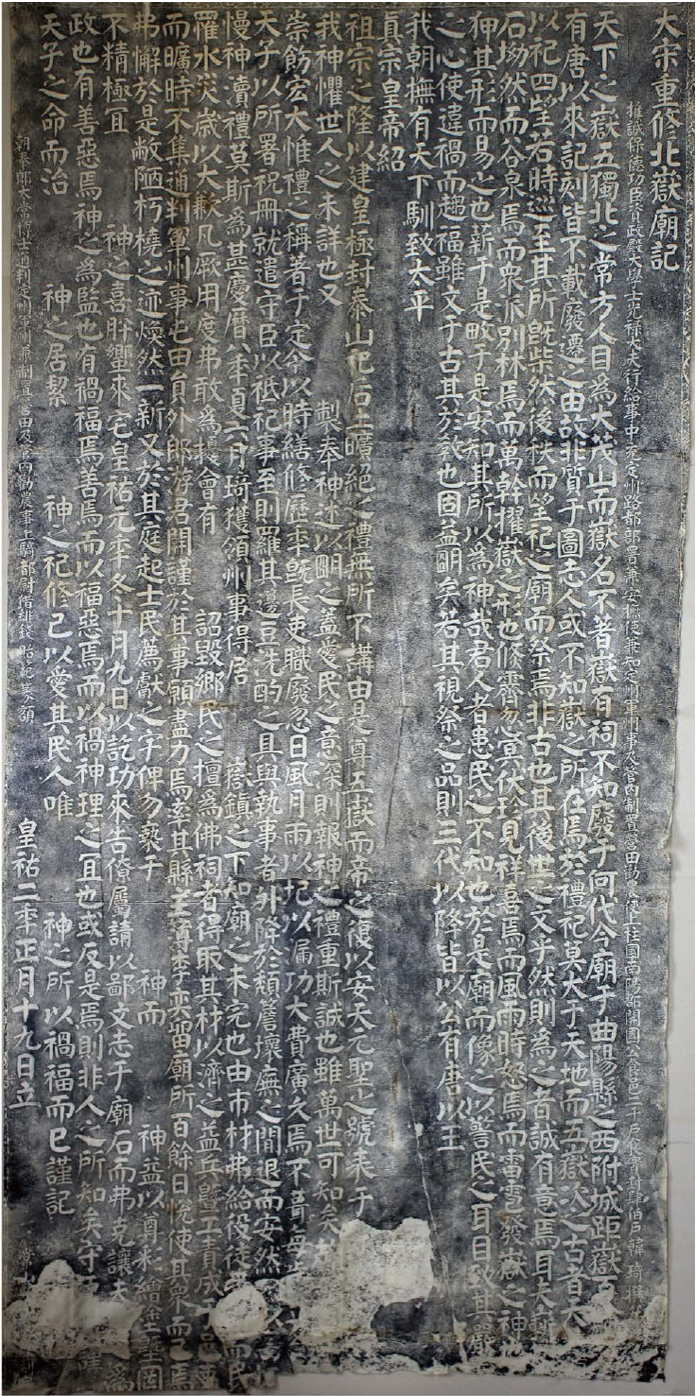 大宋重修北嶽廟記
推誠保德功臣資政殿大學士光祿大夫行給事中充定州路都部署兼安撫使兼知定州軍州事及管內制置營田勸農使上柱國南陽郡開國公食邑二千戶食實封肆伯戶韓琦撰
天下之嶽五獨北之常方人目為大茂山而嶽名不著嶽有祠不知廢于何代今廟于曲陽縣之西附城距嶽百
有唐以來記刻皆不載廢遷之由故非質于圖志人或不知嶽之所在焉於禮祀莫大于天地而五嶽次之古者天
以祀四望若時巡至其所既柴然後秩而望祀之廟而祭焉非古也其後世之文乎然則為之者誠有意焉耳夫
石坳然而谷泉焉而衆派別林焉而萬幹擢嶽之形也倏霽忽冥伏珍見祥喜焉而風雨時怒焉而雷雹發嶽之神
狎其形而易之也薪于是畋于是安知其所以為神哉君人者患民之不知也於是廟而像之以警民之耳目
之心使違禍而趨福雖文于古其於敎也固益明矣若其視祭之品則三代以降皆以公有唐以王
我朝撫有天下馴致太平
真宗皇帝紹
祖宗之隆以建皇極封泰山祀后土曠絕之禮無所不講由是尊五嶽而帝之復以安天元聖之號表于
我神懼世人之未詳也又 製奉神述以明之蓋愛民之意深則報神之禮重斯誠也雖萬世可知矣
崇飭宏大惟禮之稱著于定令以時繕修歷年既長吏職廢忽日風月雨以圮以漏功大費廣久焉不葺每
天子以所署祝冊就遣守臣以祗祀事至則羅其籩豆洗酌之具與執事者外降於頹簷壞廡之間退而安然
慢神瀆禮莫斯為甚慶曆八年夏六月琦獲領州事得居 嶽鎮之下知廟之未完也由市材弗給役徒
罹水災歲以大歉凡厥用度弗敢為擾會有 詔毀鄉民之擅為佛祠者得取其材以濟之益兵暨工責成
而曠時不集通判軍州事屯田員外郎游君開謹於其事願盡力焉率其縣主簿李奕留廟所百餘日悅使其衆而
弗懈於是敝陋朽橈之迹煥然一新又於其庭起士民薦獻之宇俾勿褻于 神而 神益以尊彩繪塗塈
不精極宜 神之喜肸蠁來宅皇祐元年冬十月九日以訖功來告僚屬請以鄙文志于廟石而弗克讓夫
政也有善惡焉神之為監也有禍福焉善焉而以福惡焉而以禍神理之宜也或反是焉則非人之所知矣守
天子之命而治 神之居絜 神之祀修己以愛其民人唯 神之所以禍福而已謹記
皇祐二年正月十九日立
朝奉郎太常博士通判定州軍州兼制置營田及管內勸農事上騎部尉緋錢 篆額